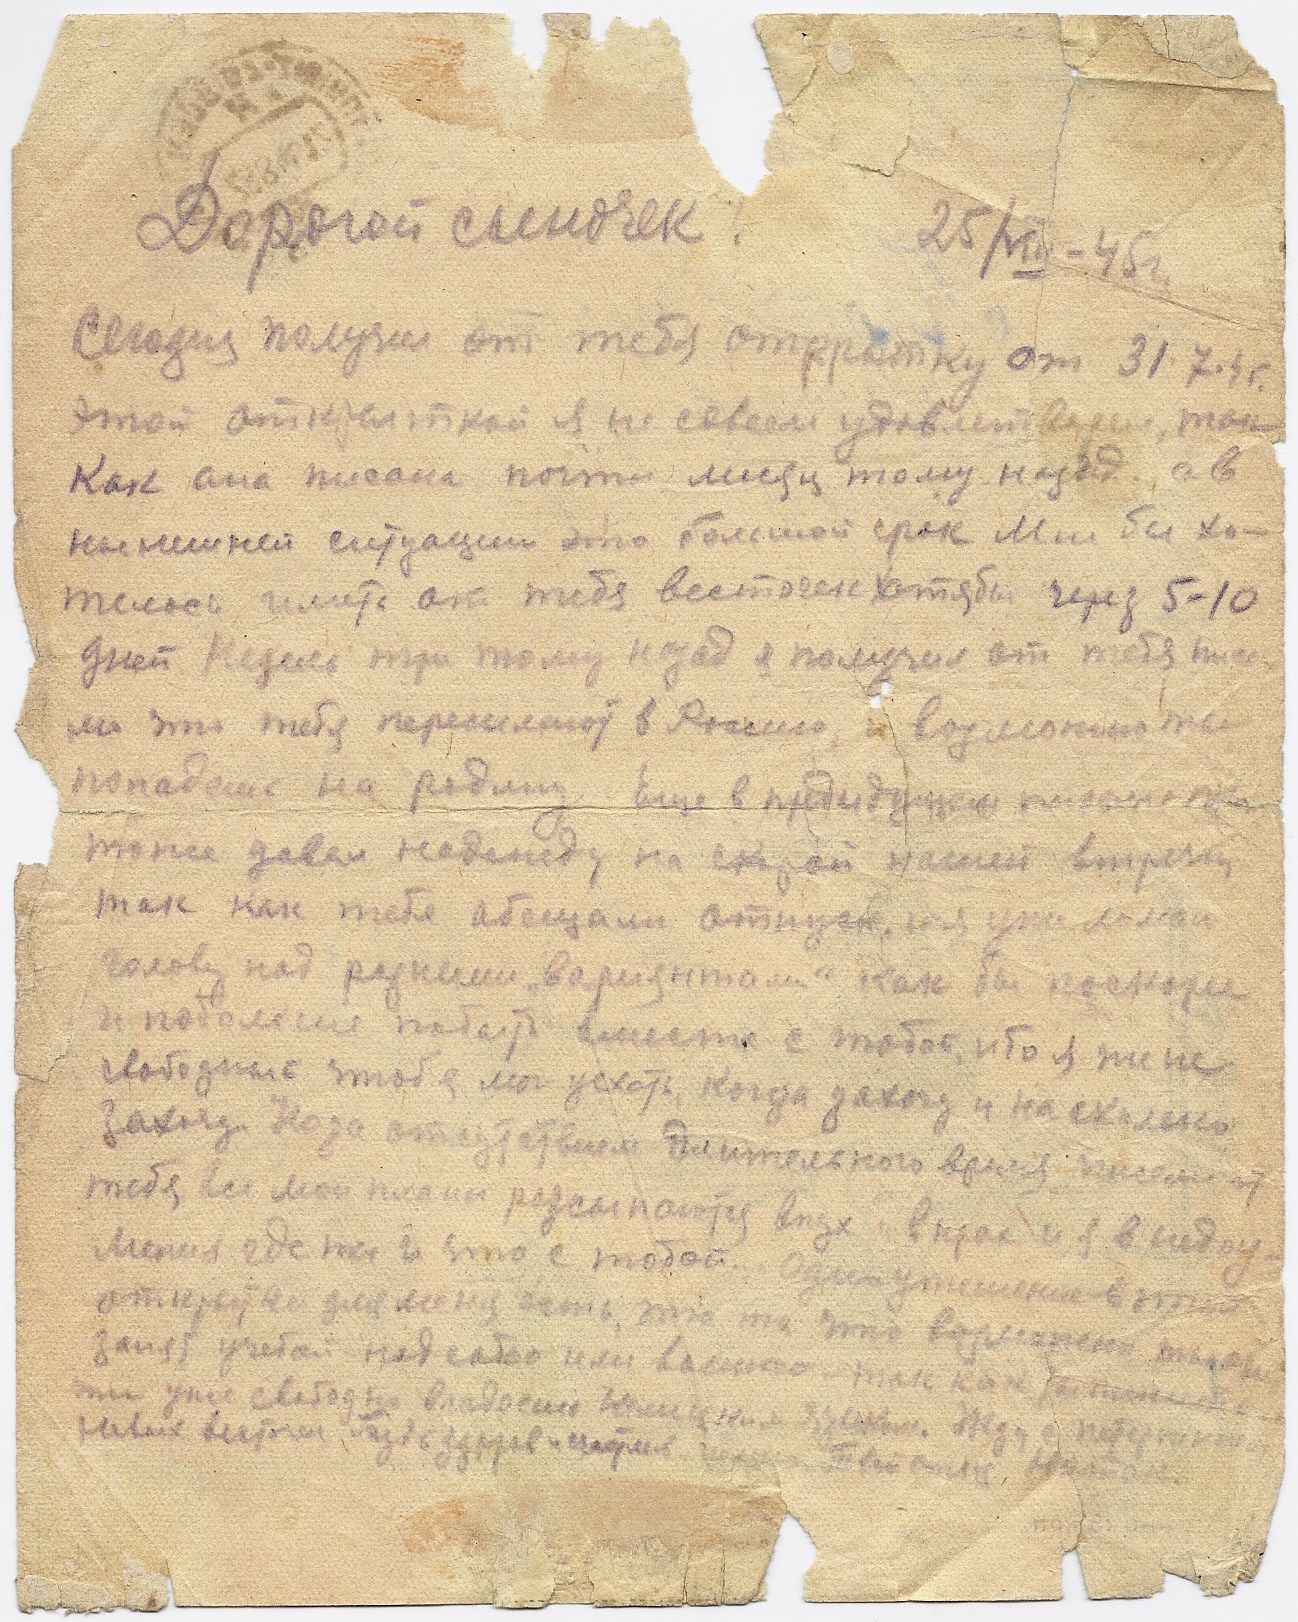 Дорогой сыночек! 25/VIII-45г.
Сегодня получил от тебя открытку от 31.7.4г.
этой открыткой я не совсем удовлетворен, так
как она писана почти месяц тому назад, а в
нынешней ситуации это большой срок Мне бы хо-
телось иметь от тебя весточек хотябы через 5-10
дней Недель три тому назад я получил от тебя пись-
мо что тебя пересылают в Россию, и возможно ты
попадеш на родину. Еще в предыдущем письме ты
тоже давал надежду на скорой нашей встречи
так как тебе обещали отпуск, и я уже ломал
голову над разными „вариянтами" как бы поскорее
и побольше побыть вместе с тобой, ибо я же не
свободный чтобы мог уехать, когда захочу и на сколько
захочу. Из за отсутствием длительного время писем от
тебя, все мои планы розсыпаются впух и впрах и я в недоу-
мении где ты и что с тобой. Одно утешение в этой
открытке для меня есть, это то что возможно ты
занят учебой над собою или вашею так как
ты уже свободно владееш немецким языком. Жду с нетерпением
новых вестей Будь здоров Твой отец